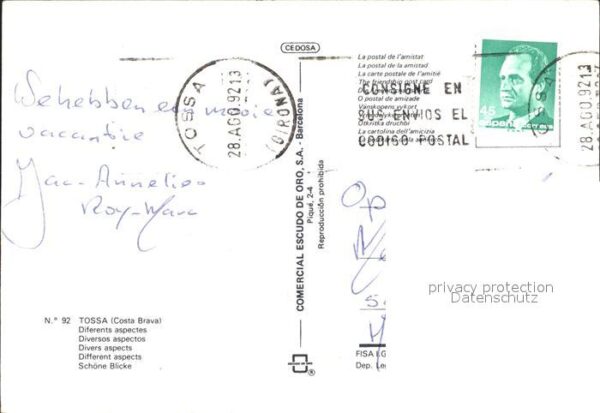 CEDOSA
We hebben een mooie
vacantie
Jac-Annelies
Roy-Marc
TOSSA
28.AGO.92 13
(GIRONA)
COMERCIAL ESCUDO DE ORO, S.A. - Barcelona
Piqué, 2-4
Reproducción prohibida
La postal de l'amistat
La postal de la amistad
La carte postale de l'amitié
The friendship post card
O postal de amizade
Vänskapens vykort
La cartolina dell'amicizia
CONSIGNE EN
SUS ENVIOS EL
CODIGO POSTAL
45
España
correos
TOSSA
28.AGO.92
Op
privacy protection
Datenschutz
FISA I.G.
Dep. Le
N.º 92 TOSSA (Costa Brava)
Diferents aspectes
Diversos aspectos
Divers aspects
Different aspects
Schöne Blicke
®